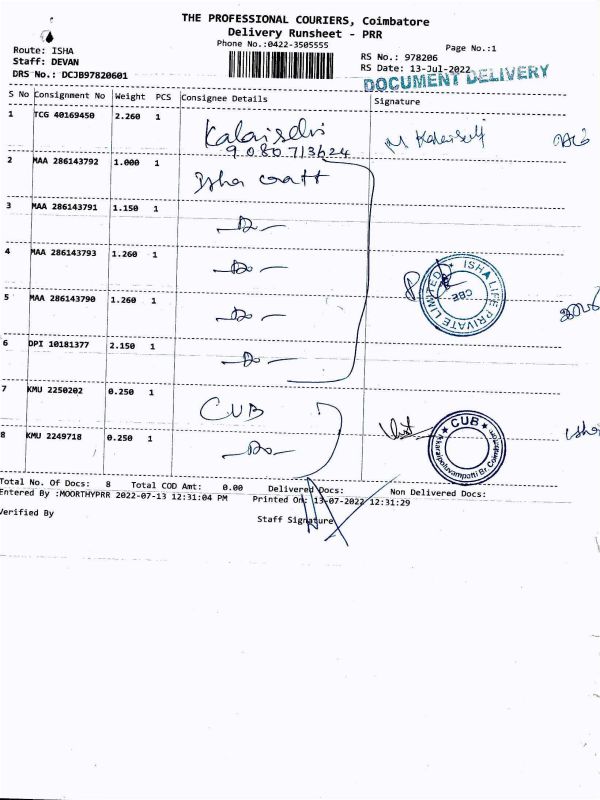 THE PROFESSIONAL COURIERS, Coimbatore
Delivery Runsheet - PRR
Phone No.:0422-3505555
Page No.:1
Route: ISHA
Staff: DEVAN
DRS No.: DCJB97820601
RS No.: 978206
RS Date: 13-Jul-2022
DOCUMENT DELIVERY
S No Consignment No Weight PCS Consignee Details Signature
1 TCG 40169450 2.260 1 Kalaiselvi M Kalaiselvi
9080713624
2 MAA 286143792 1.000 1 Isha craft
3 MAA 286143791 1.150 1 -Do-
4 MAA 286143793 1.260 1 -Do-
ISHA LIFE PRIVATE LIMITED
CBE
5 MAA 286143790 1.260 1 -Do-
6 DPI 10181377 2.150 1 -Do-
7 KMU 2250202 0.250 1 CUB
8 KMU 2249718 0.250 1 -Do-
CUB
Total No. Of Docs: 8 Total COD Amt: 0.00 Delivered Docs: Non Delivered Docs:
Entered By :MOORTHYPRR 2022-07-13 12:31:04 PM Printed On: 13-07-2022 12:31:29
Verified By
Staff Signature